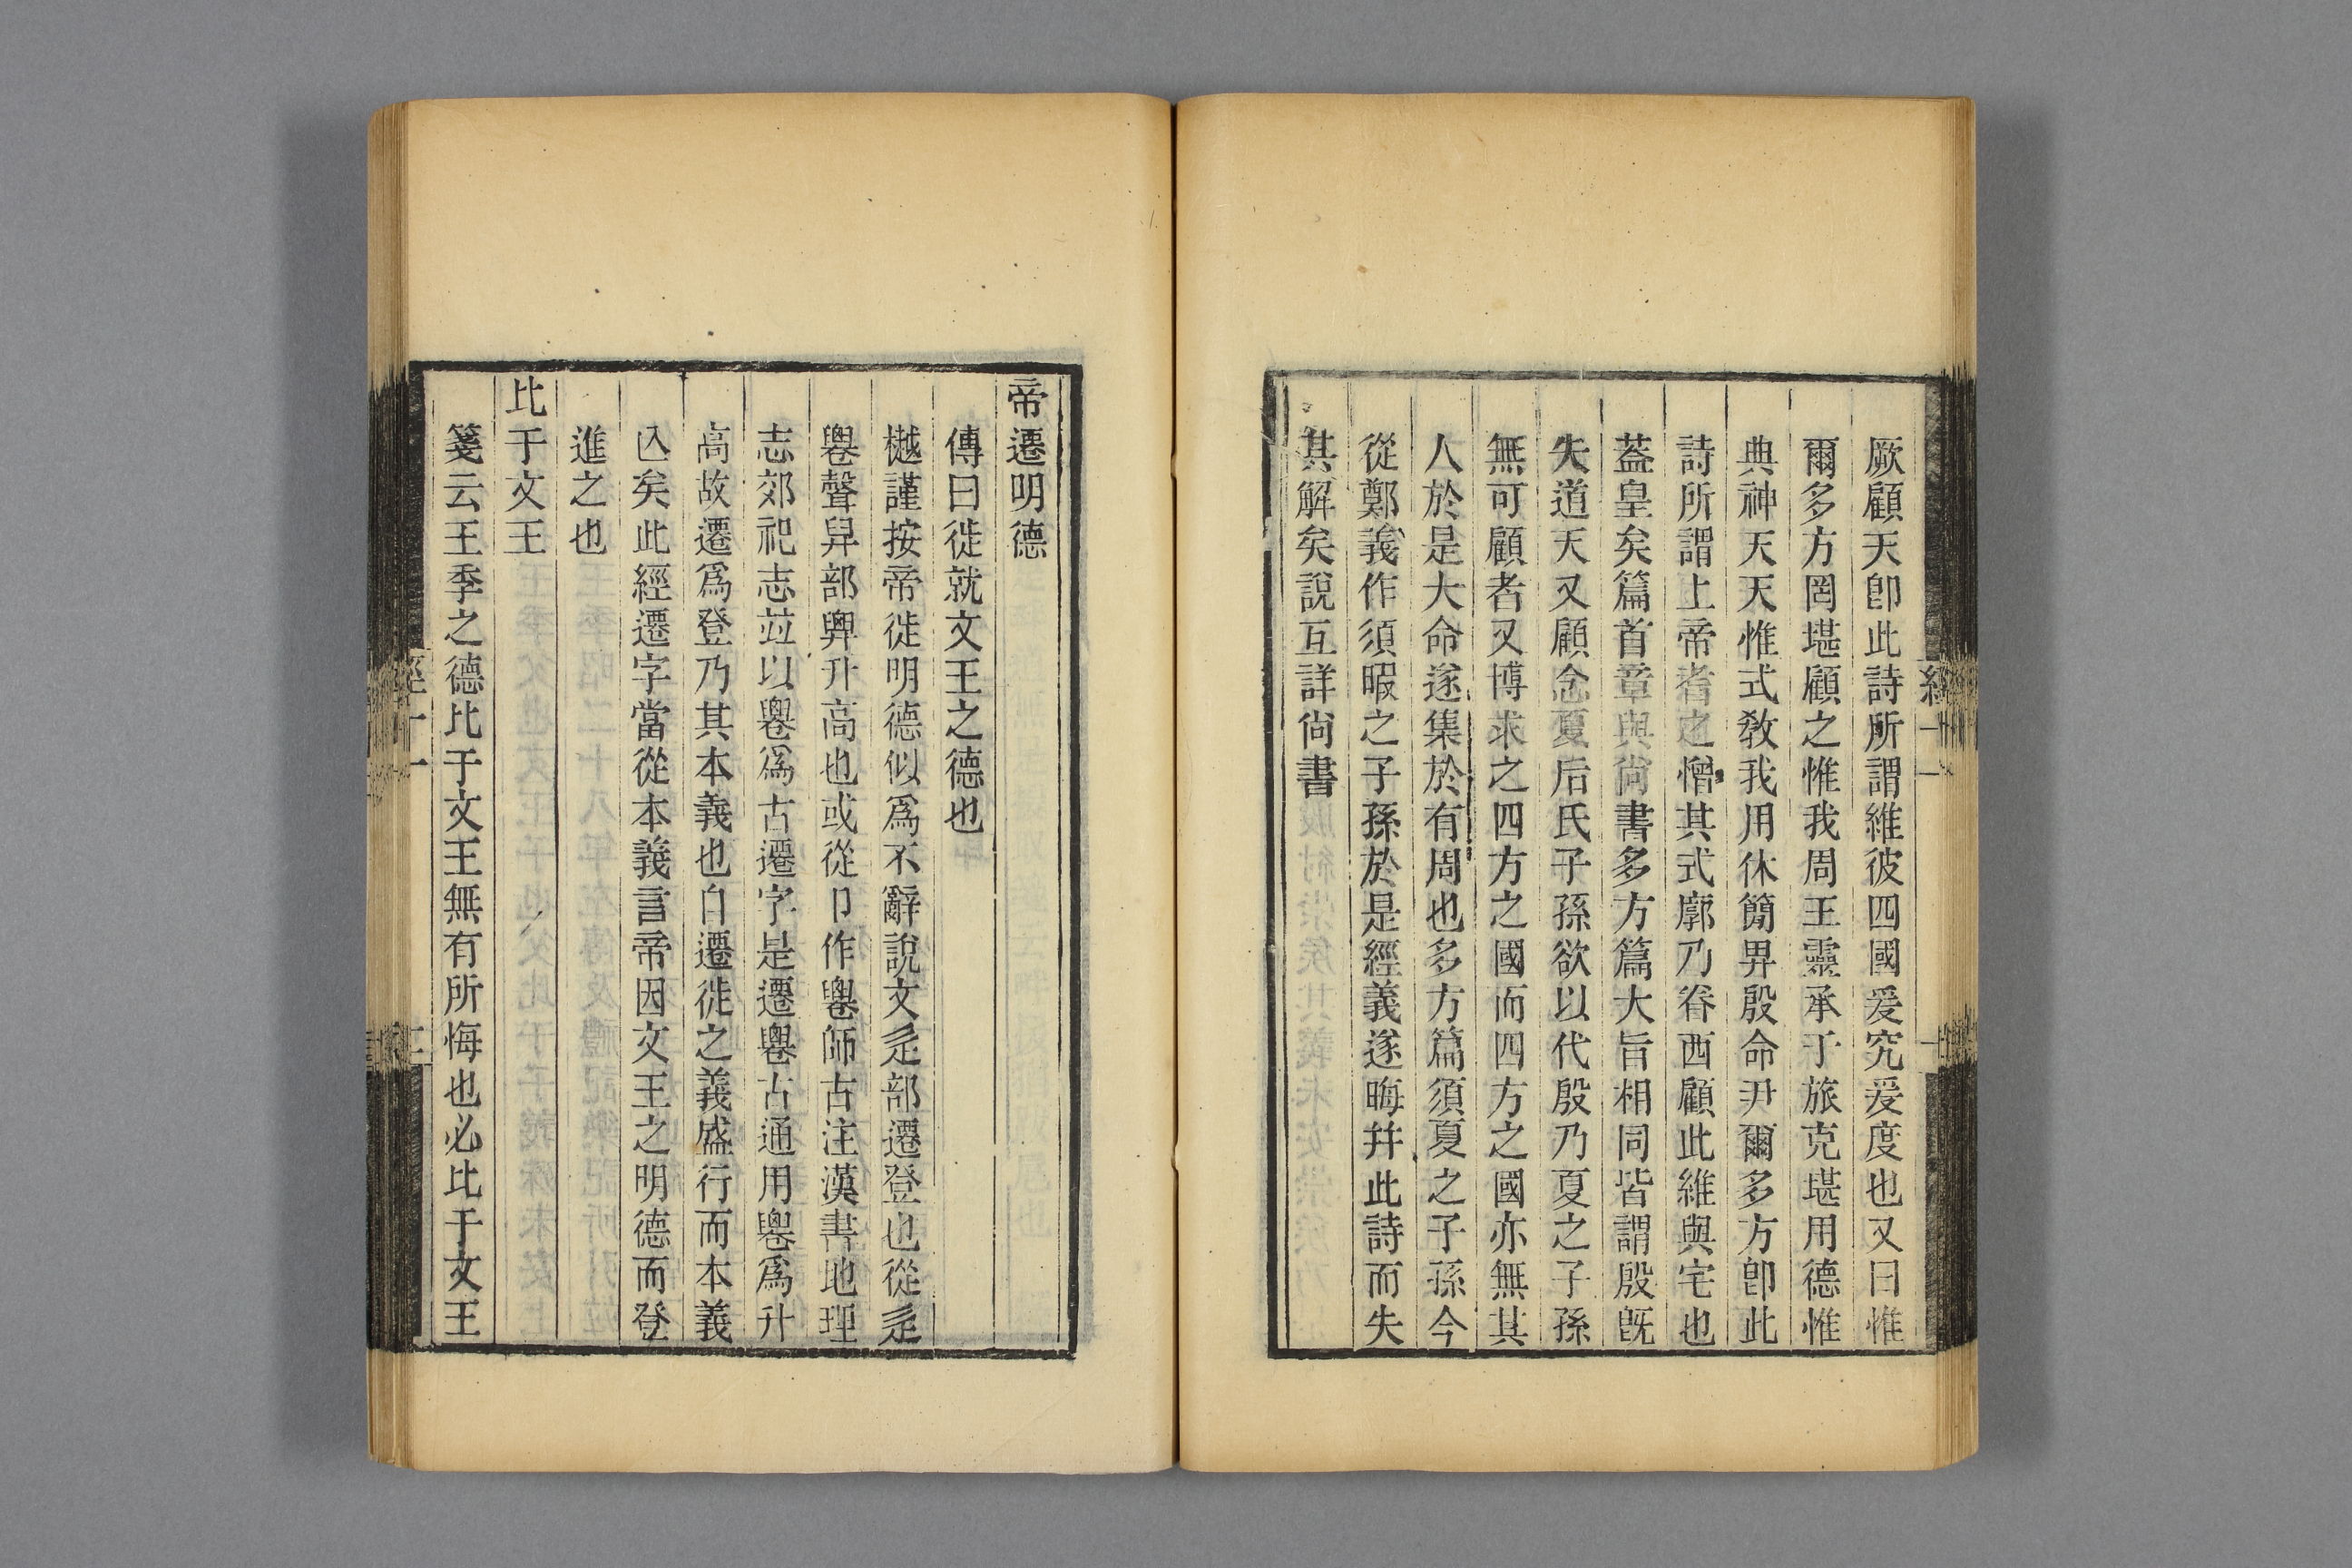 厥顧天卽此詩所謂維彼四國爰究爰度也又曰惟
爾多方罔堪顧之惟我周王靈承于旅克堪用德惟
典神天天惟式敎我用休簡畀殷命尹爾多方卽此
詩所謂上帝耆之憎其式廓乃眷西顧此維與宅也
蓋皇矣篇首章與尙書多方篇大旨相同皆謂殷旣
失道天又顧念夏后氏子孫欲以代殷乃夏之子孫
無可顧者又博求之四方之國而四方之國亦無其
人於是大命遂集於有周也多方篇須夏之子孫今
從鄭義作須暇之子孫於是經義遂晦幷此詩而失
其解矣說互詳尙書
帝遷明德
傳曰徙就文王之德也
樾謹按帝徙明德似爲不辭說文辵部遷登也從辵
䙴聲舁部䙴升高也或從卩作䙴師古注漢書地理
志郊祀志竝以䙴爲古遷字是遷䙴古通用䙴爲升
高故遷爲登乃其本義也自遷徙之義盛行而本義
亾矣此經遷字當從本義言帝因文王之明德而登
進之也
比于文王
箋云王季之德比于文王無有所悔也必比于文王
經十一